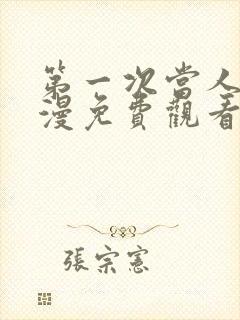 第一次當人
漫免費觀看
張宗憲